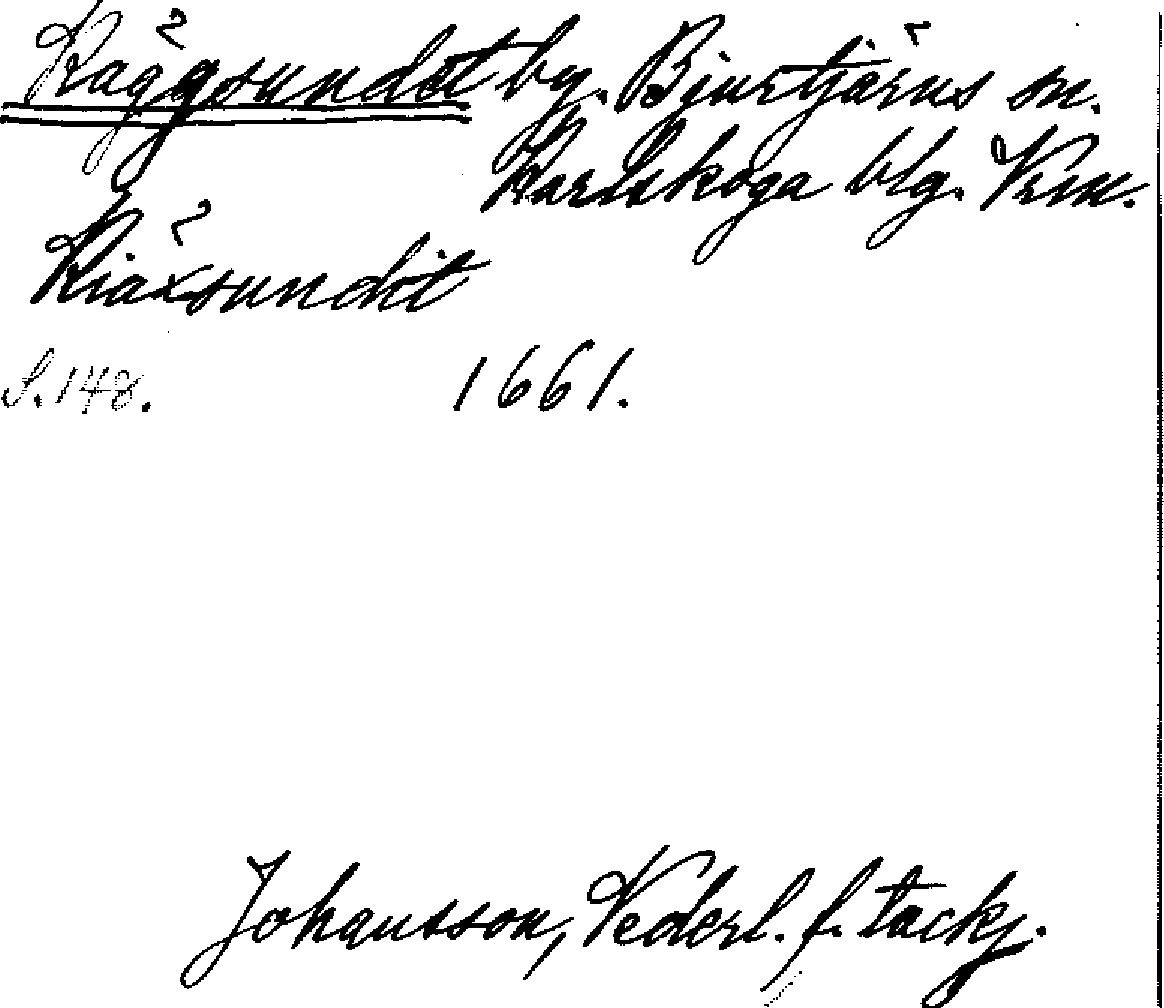 Räggsundet by. Bjurtjärns sn.
Karlskoga blg. Vrm.
Riäxsundet
S. 148. 1661.
Johansson, Vederl. f. tackj.